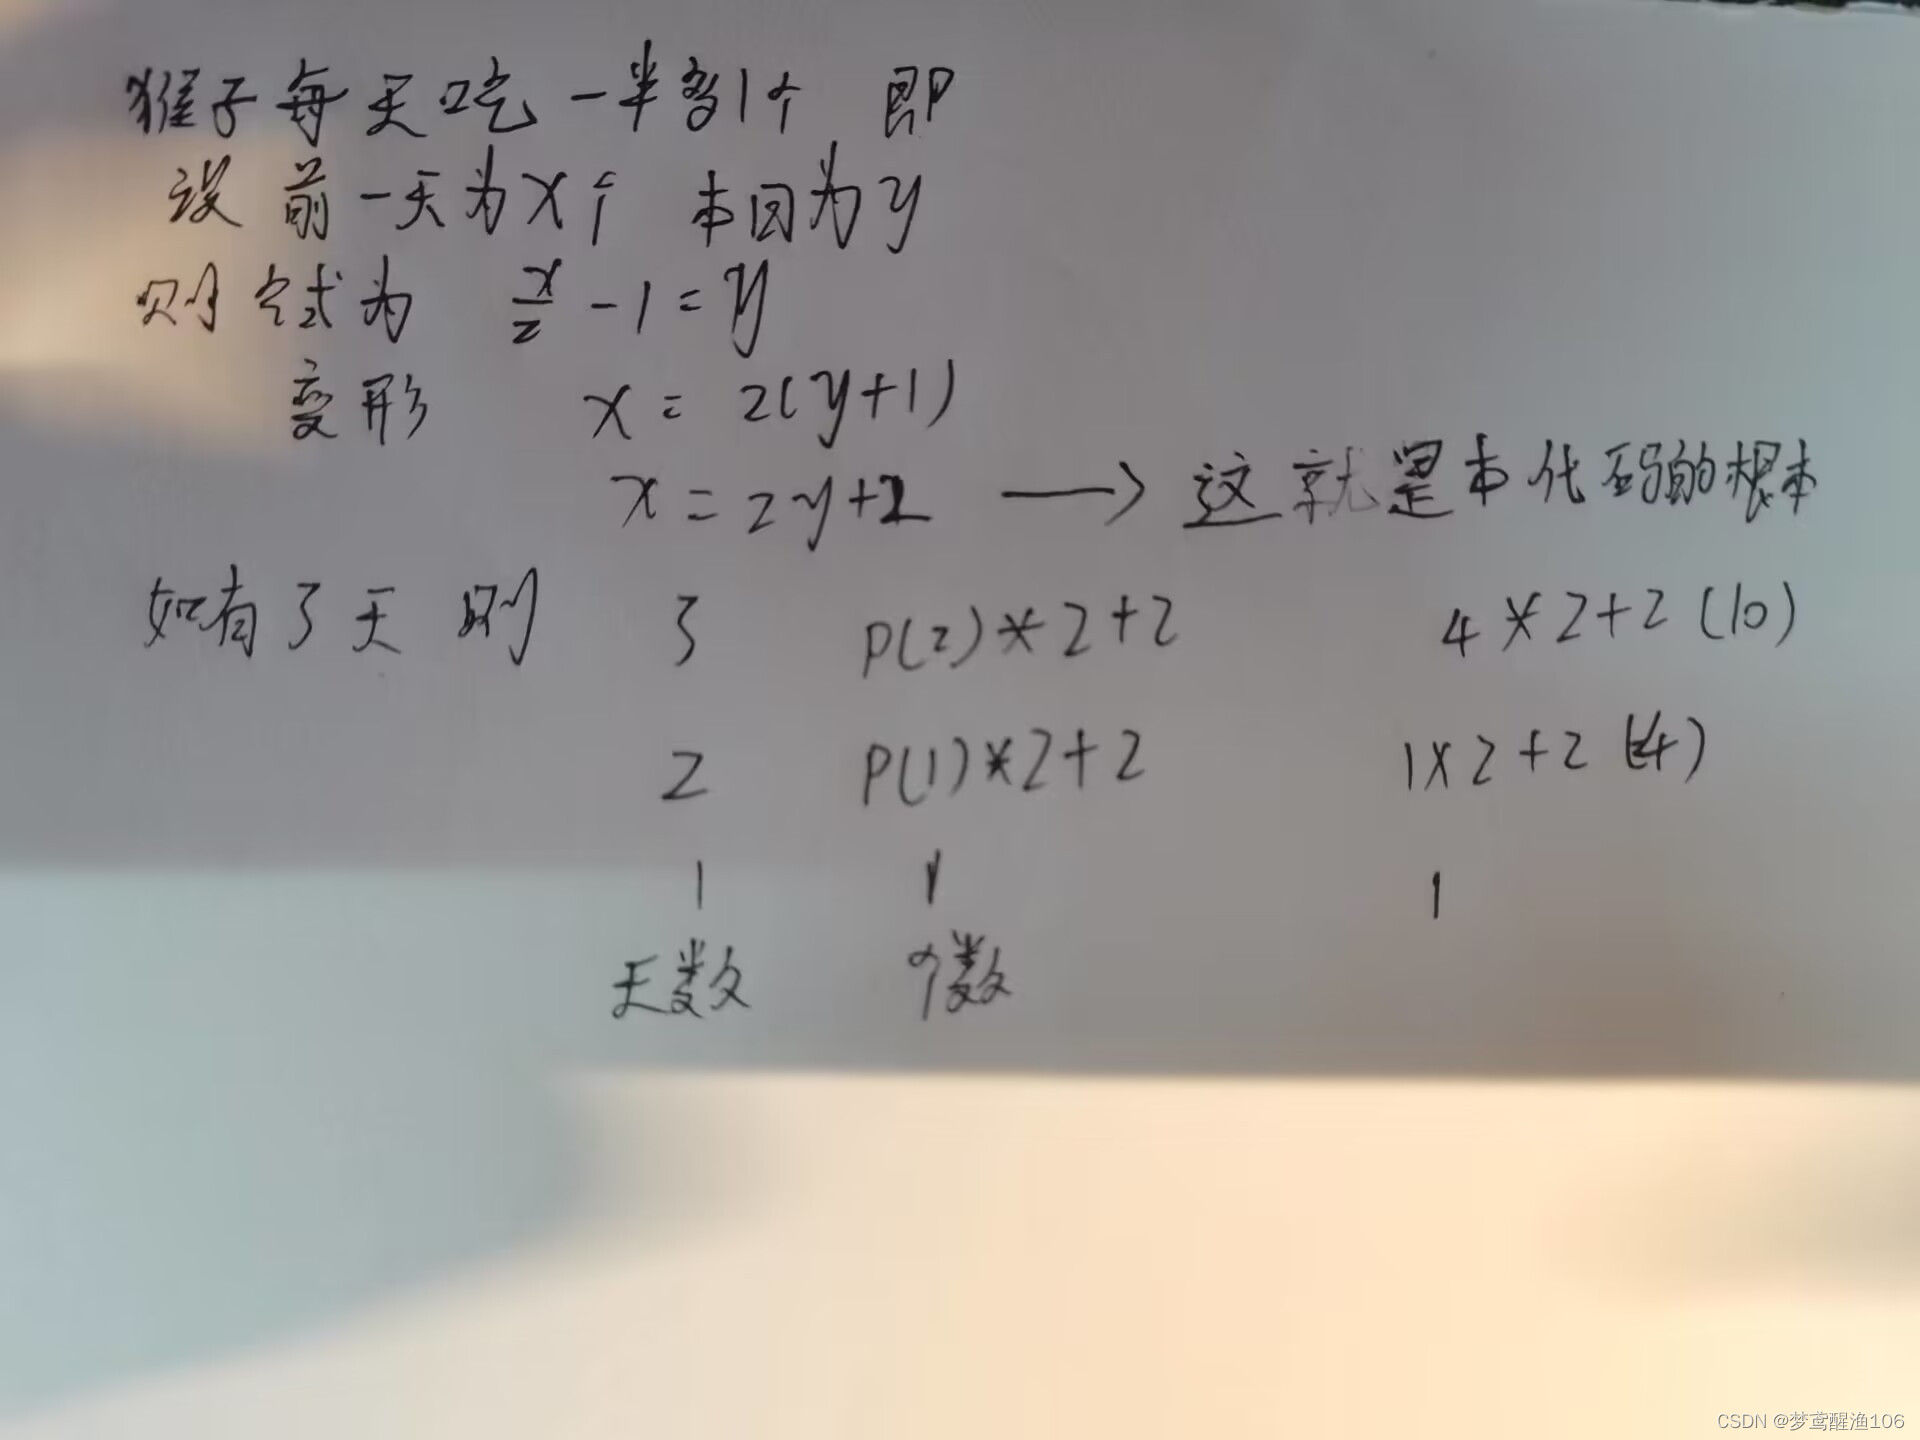 猴子每天吃一半多1个 即
设前一天为x个 本因为y
则公式为 x/2 - 1 = y
变形 x = 2(y+1)
x = 2y+2 → 这就是本代码的根本
如有3天则 3 P(2)*2+2 4*2+2(10)
2 P(1)*2+2 1x2+2(4)
1 1 1
天数 个数
CSDN @梦鸢醒渔106